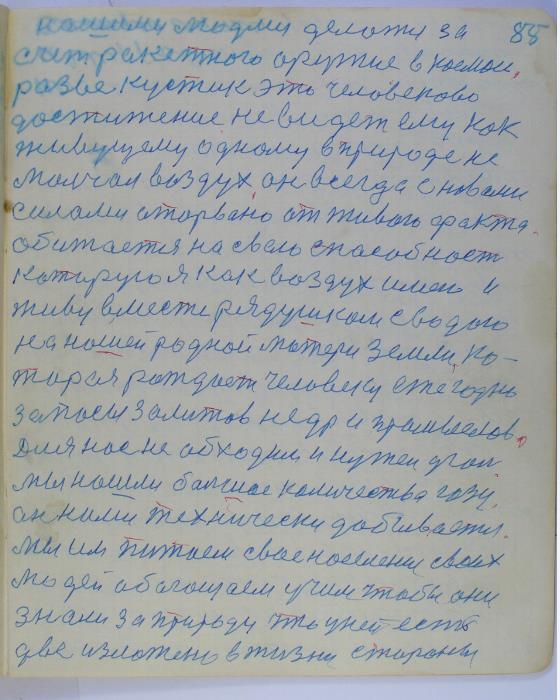 88
нашими людми деложи за
счит ракетного оружие в космои,
разве кустик это человеково
достижение не видет ему как
живущему одному в природе не
молчал воздух он всегда с новами
силами аторвано от живого факта.
обитается на свою способност
которую я как воздух имею и
живу вместе рядушком с водою
на нашей родной матери земли, ко-
торая рождает человеку ежегодно
запасы залитов недр и
Для нас не обходим и нужен угол
мы нашли балшое количества газу
он нами технически добивается.
мы им питаем свое населения своих
людей обогощаем учим чтобы они
знали за природу что у ней есть
две изложено в жизни стораны